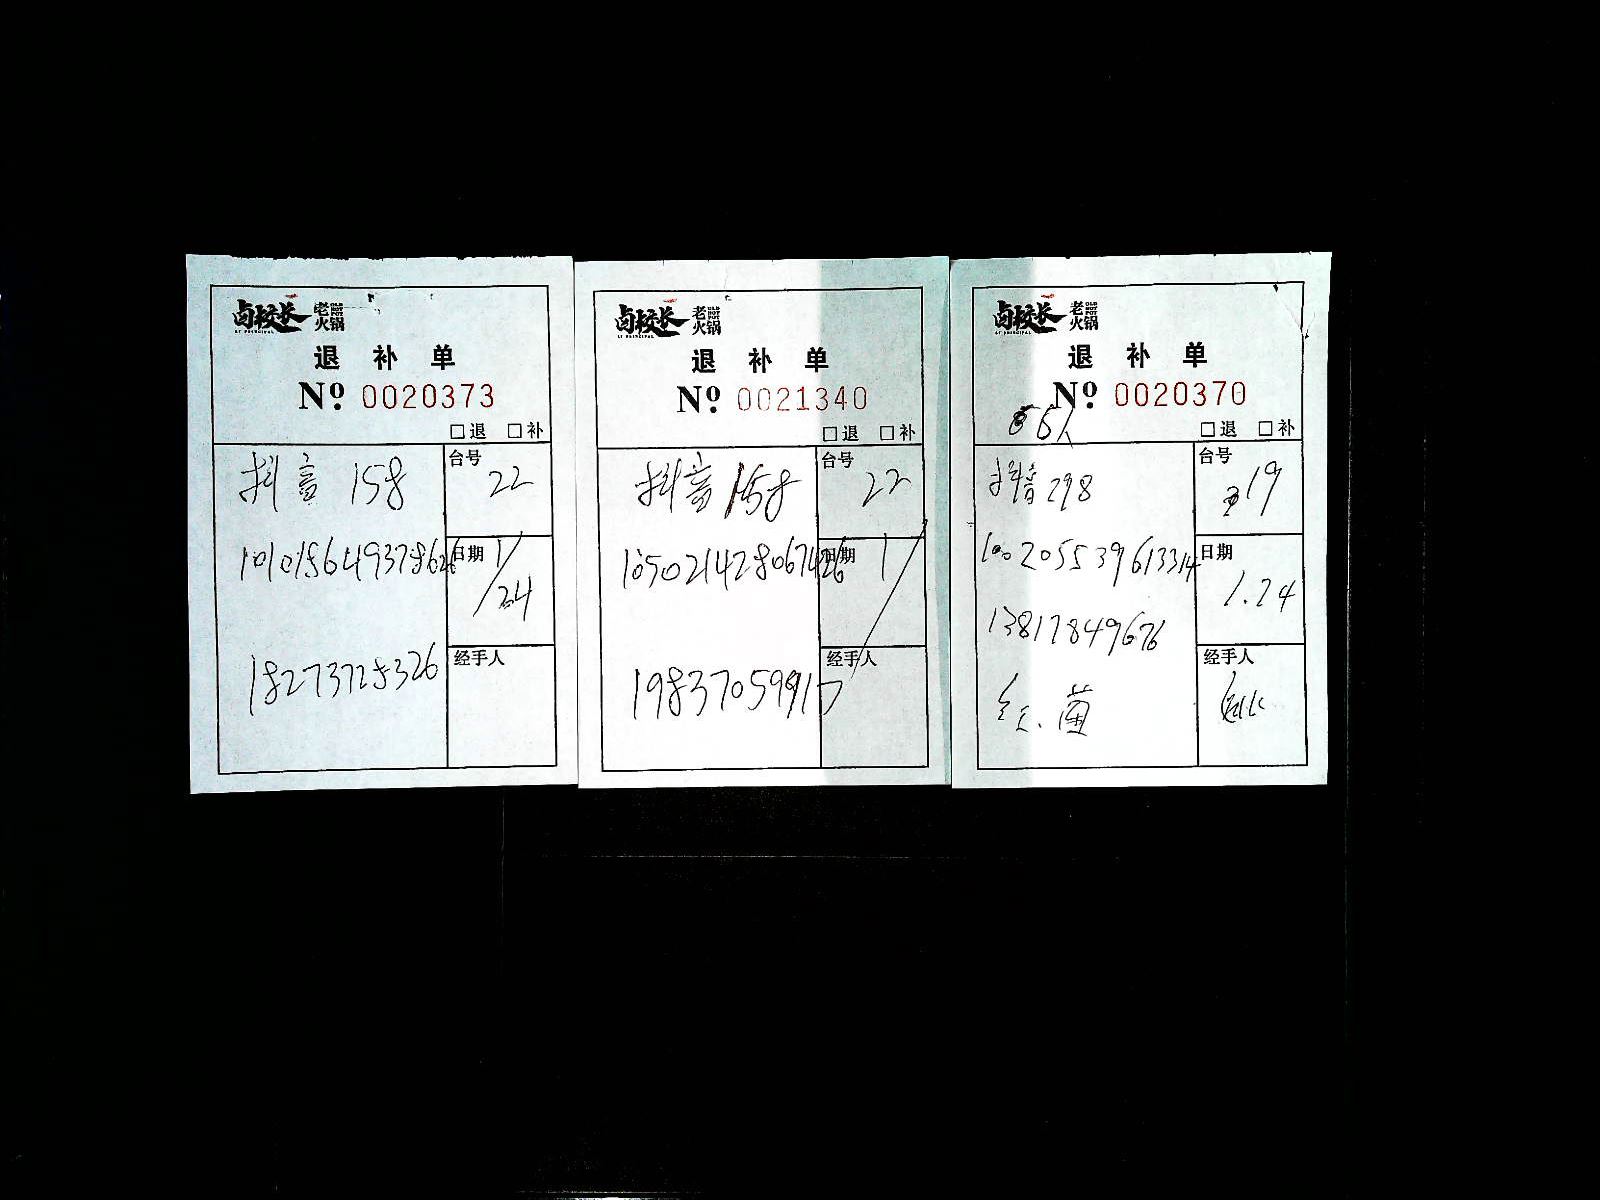 卤校长 老火锅
LU PRINCIPAL
退 补 单
Nº. 0020373
□退 □补
抖音 158
台号 22
101018649378626
日期 1/24
18273728326
经手人
卤校长 老火锅
LU PRINCIPAL
退 补 单
Nº. 0021340
□退 □补
抖音 158
台号 22
1050214280671426
日期 1/
19837059917
经手人
卤校长 老火锅
LU PRINCIPAL
退 补 单
Nº. 0020370
5人
□退 □补
抖音298
台号 19
100205539613314
日期 1.24
13817849676
经手人